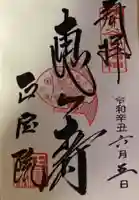 奉拝
令和辛丑六月五日
恵比寿
正宝院